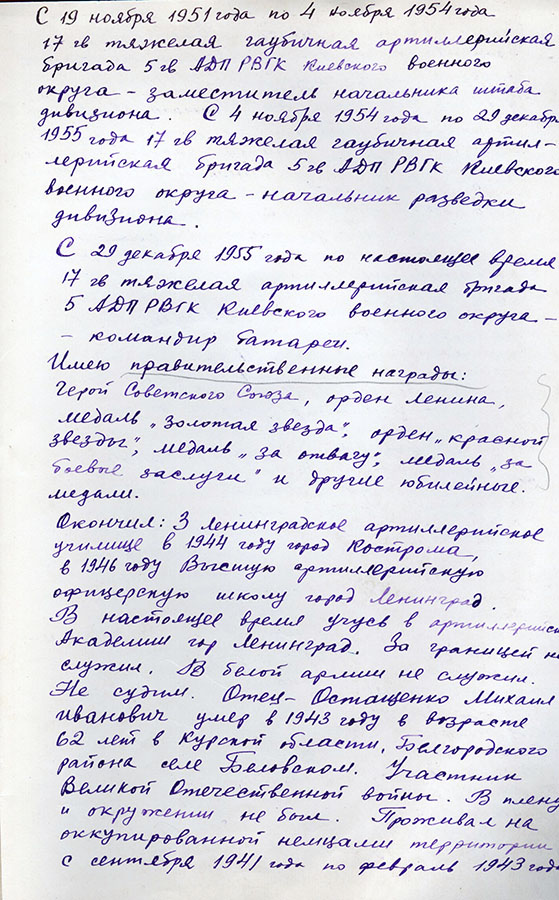 С 19 ноября 1951 года по 4 ноября 1954 года
17 гв тяжелая гаубичная артиллерийская
бригада 5 гв АДП РВГК Киевского военного
округа - заместитель начальника штаба
дивизиона. С 4 ноября 1954 года по 29 декабр
1955 года 17 гв тяжелая гаубичная артил-
лерийская бригада 5 гв АДП РВГК Киевского
военного округа - начальник разведки
дивизиона.
С 29 декабря 1955 года по настоящее время
17 гв тяжелая артиллерийская бригада
5 АДП РВГК Киевского военного округа -
- командир батареи.
Имею правительственные награды:
Герой Советского Союза, орден Ленина,
медаль „Золотая звезда", орден „красной
звезды", медаль „за отвагу", медаль „за
боевые заслуги" и другие юбилейные.
медали.
Окончил: 3 Ленинградское артиллерийское
училище в 1944 году город Кострома,
в 1946 году Высшую артиллерийскую
офицерскую школу город Ленинград.
В настоящее время учусь в артиллерийс
Академии гор Ленинград. За границей не
служил. В белой армии не служил.
Не судим. Отец - Остащенко Михаил
иванович умер в 1943 году в возрасте
62 лет в Курской области, Белгородского
района селе Беловском. Участник
Великой Отечественной войны. В плену
и окружении не был. Проживал на
оккупированной немцами территории
с сентября 1941 года по февраль 1943 года